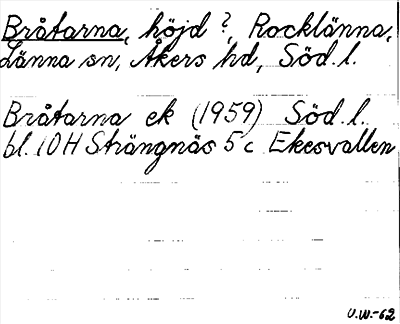 Bråtarna, höjd?, Rocklänna,
Länna sn, Åkers hd, Söd.l.
Bråtarna ek (1959) Söd.l.
bl. 10H Strängnäs 5c Ekesvallen
U.W.-62